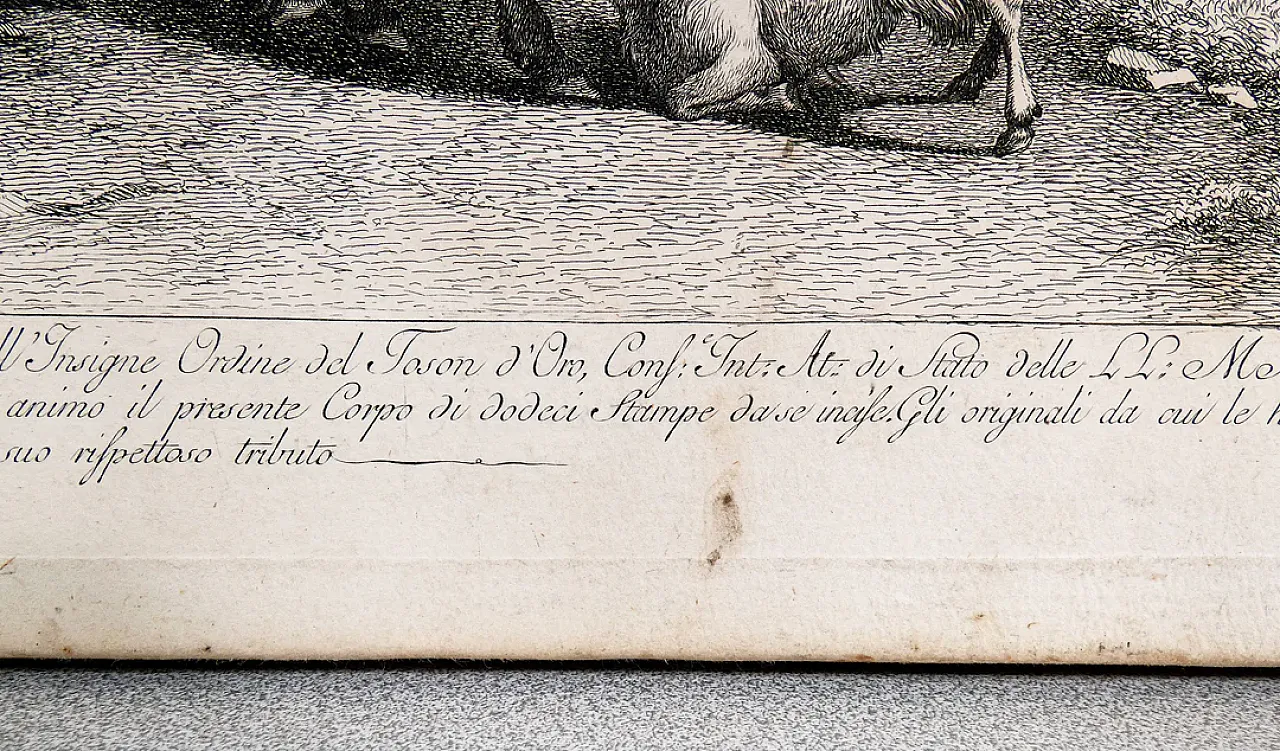 ll'Insigne Ordine del Toson d'Oro, Consˢ:ᵉ Int: At: di Stato delle LL: M
animo il presente Corpo di dodeci Stampe da se incise. Gli originali da cui le
suo rispettoso tributo